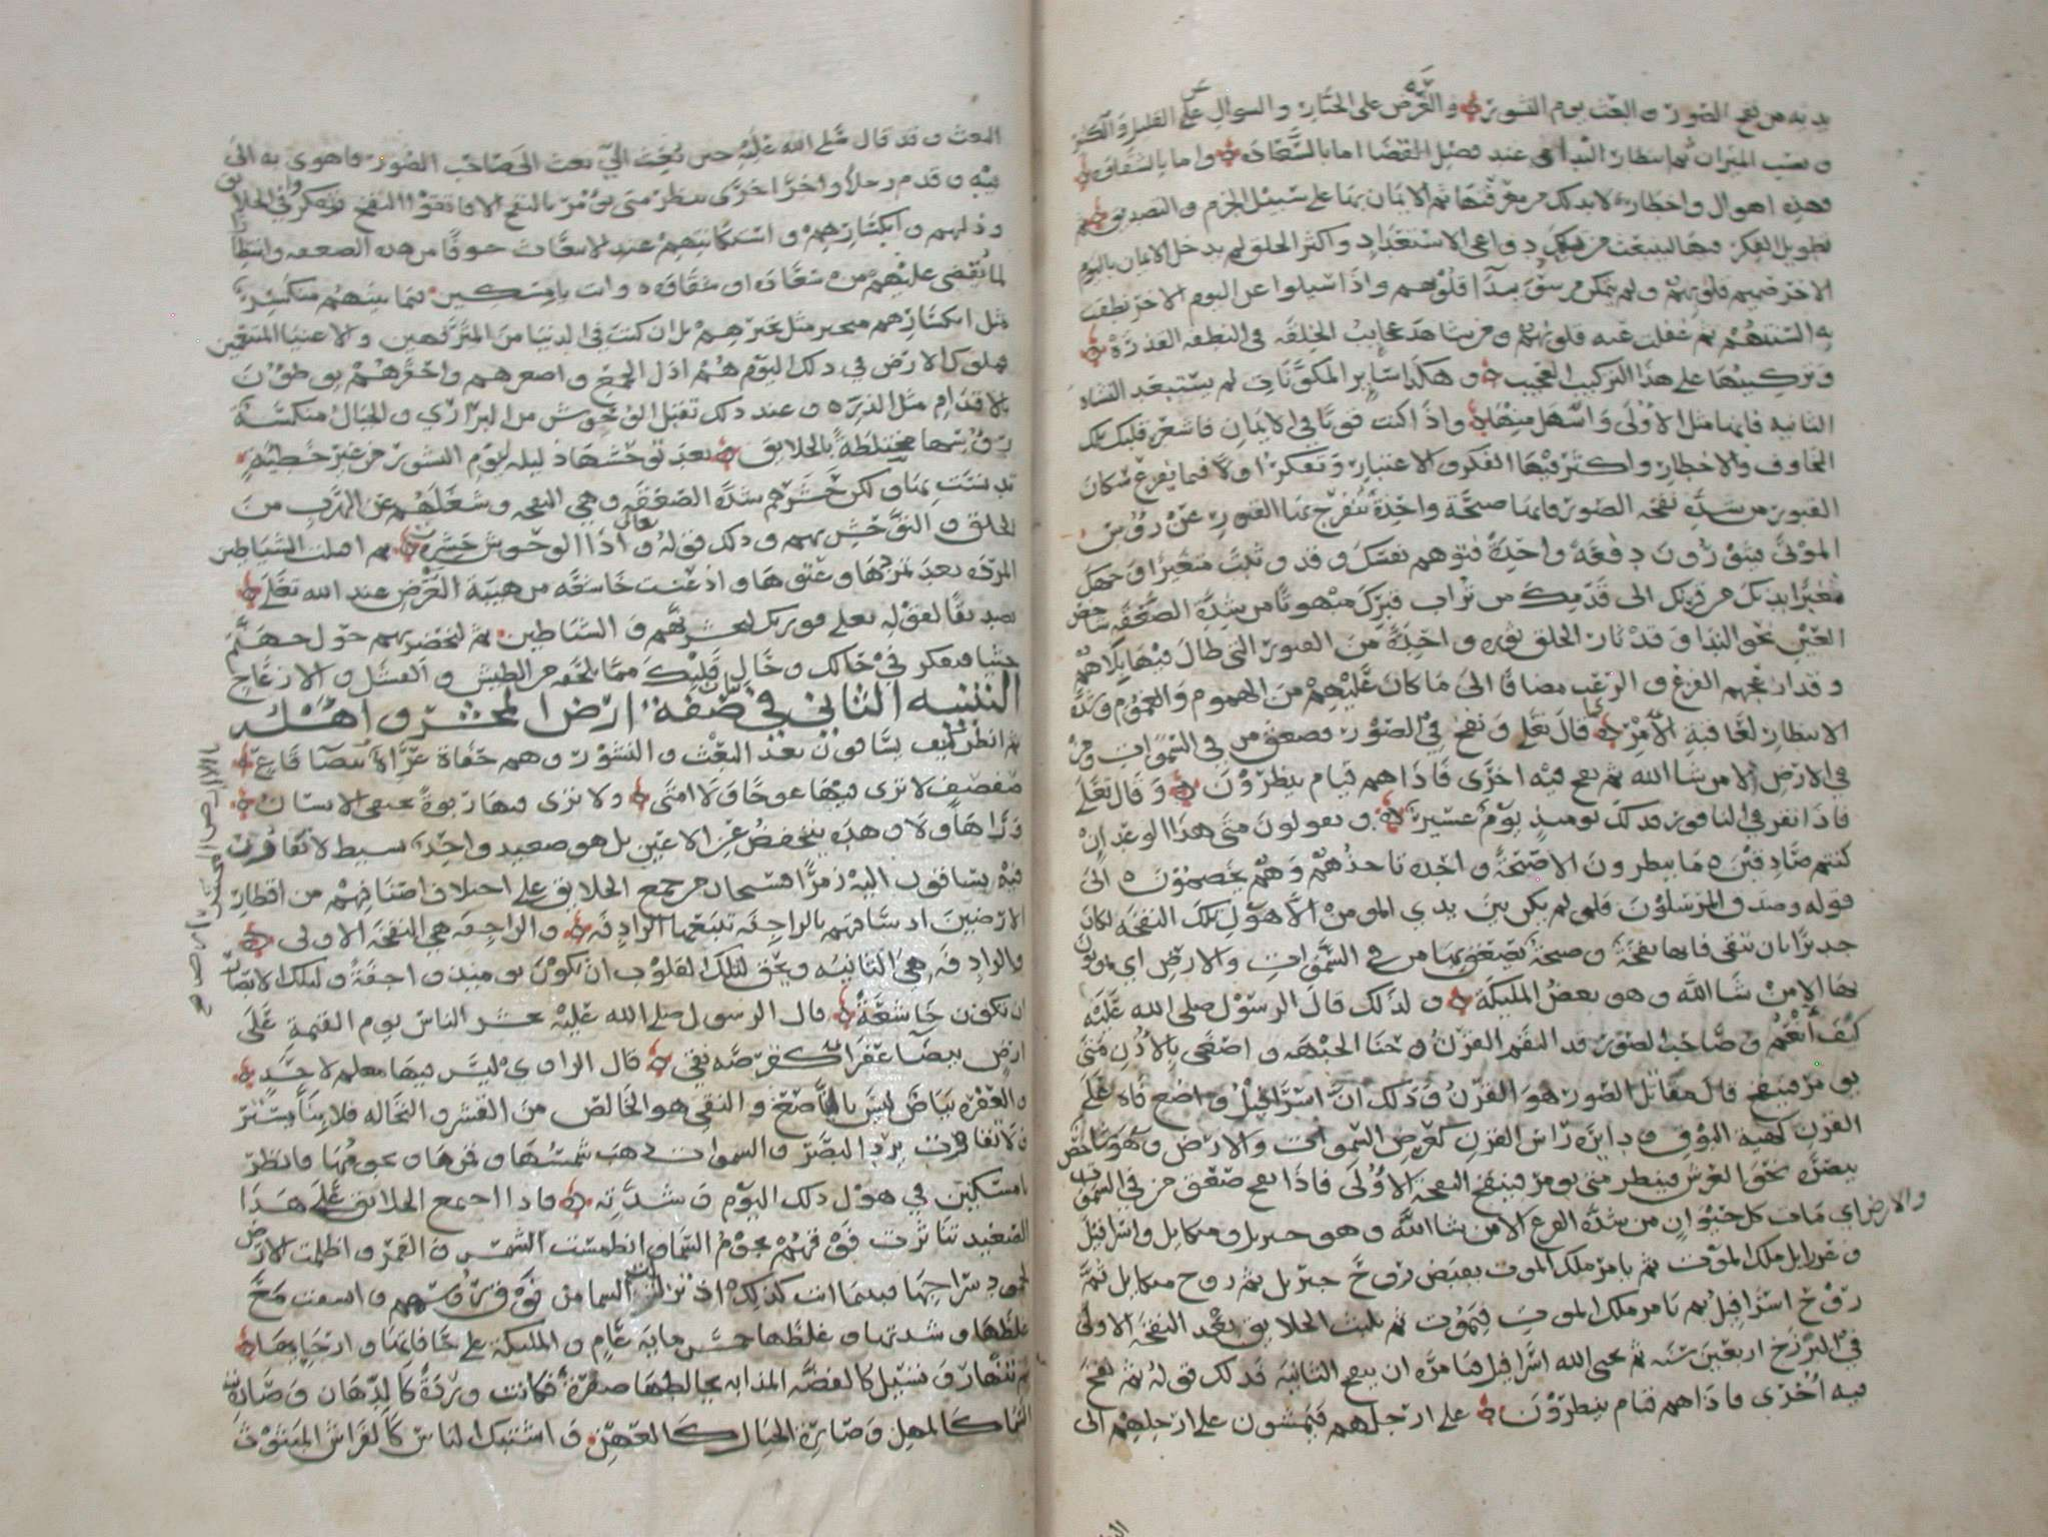 يديه من نفخ الصور والبعث يوم النشور والعرض على الجبار والسوال عن القليل والكثير
ونصب الميزان ثم انتظار النداء عند فصل القضا اما بالسعادة واما بالشقاوة
فهذه اهوال واخطار لابد لك من معرفتها ثم الايمان بها على سبيل الجزم والتصديق ثم
تطويل الفكر فيها لينبعث من قلبك دواعي الاستعداد واكثر الخلق لم يدخل الايمان باليوم
الاخر صميم قلوبهم ولم يتمكن من سويدا قلوبهم واذا سيلوا عن اليوم الاخر نطقت
به السنتهم ثم غفلت عنه قلوبهم ومن شاهد عجايب الخلقه في النطفه القذرة
وتركيبها على هذا التركيب العجيب وهكذا ساير المكونات لم يستبعد النشاة
الثانيه فانها مثل الاولى واسهل منها واذا كنت قويا في الايمان فاشعر قلبك تلك
المخاوف والاخطار واكثر فيها الفكر والاعتبار وتفكر اولا فيما يقرع سكان
القبور من شدة نفخه الصور فانها صيحة واحدة تنفرج بها القبور عن رؤس
الموتى فيثورون دفعة واحدة فتوهم نفسك وقد وثبت متغيرا وجهك
مغبرا بدنك من قرنك الى قدمك من تراب قبرك مبهوتا من شدة الصعقه شاخص
العين نحو الندا وقد ثار الخلق ثورة واحدة من القبور التي طال فيها بلاهم
وقد ازعجهم الفزع والرعب مضافا الى ما كان عليهم من الهموم والغموم وشدة
الانتظار لعاقبة الامر كما قال تعلى ونفخ في الصور فصعق من في السموات ومن
في الارض الا من شا الله ثم نفخ فيه اخرى فاذا هم قيام ينظرون وقال تعلى
فاذا نقر في الناقور فذلك يوميذ يوم عسير ويقولون متى هذا الوعد ان
كنتم صادقين ما ينظرون الا صيحة واحدة تاخذهم وهم يخصمون الى
قوله وصدق المرسلون فلو لم يكن بين يدي المومن الا هول تلك النفخة لكان
جديرا بان يتقى فانها نفخة وصيحة يصعق بها من في السموات والارض اي يموتون
بها الا من شا الله وهو بعض المليكة ولذلك قال الرسول صلى الله عليه
كيف انعم وصاحب الصور قد التقم القرن وحنا الجبهه واصغى بالاذن متى
يومر فينفخ قال مقاتل الصور هو القرن وذلك ان اسرافيل واضع فاه على
القرن كهية البوق ودايرة راس القرن كعرض السموات والارض وهو شاخص
ببصره نحو العرش ينتظر متى يومر فينفخ النفخة الاولى فاذا نفخ صعق من في السموات
والارض اي مات كل حيوان من شدة الفزع الا من شا الله وهو جبريل وميكايل واسرافيل
وعزرايل ملك الموت ثم يامر ملك الموت بقبض روح جبريل ثم روح ميكايل ثم
روح اسرافيل ثم يامر ملك الموت فيموت ثم يلبث الخلايق بعد النفخة الاولى
في البرزخ اربعين سنه ثم يحيى الله اسرافيل فيامره ان ينفخ الثانية فذلك قوله ثم نفخ
فيه اخرى فاذا هم قيام ينظرون على ارجلهم فيمشون على ارجلهم الى
البعث وقد قال صلى الله عليه حين بعث الي بعث الى صاحب الصور فاهوى به الى
فيه وقدم رجلا واخر اخرى ينتظر متى يومر بالنفخ الا فاتقوا النفخ فتفكر في الخلايق
وذلهم وانكسارهم واستكانتهم عند الانبعاث خوفا من هذه الصعقه وانتظارا
لما يقضى عليهم من سعادة او شقاوة وانت يا مسكين فيما بينهم منكسر
مثل انكسارهم متحير مثل تحيرهم بل ان كنت في الدنيا من المترفهين والاغنيا المتنعمين
فملوك الارض في ذلك اليوم هم اذل الجمع واصغرهم واحقرهم يوطون
بالاقدام مثل الذرة وعند ذلك تقبل الوحوش من البراري والجبال منكسة
روسها مختلطة بالخلايق بعد توحشها ذليله ليوم النشور من غير خطية
تدنست بها ولكن حشرهم شدة الصعقه وهي النفخه وشغلهم عن الهرب من
الخلق والتوحش بهم وذلك قوله تعالى واذا الوحوش حشرت ثم اقبلت الشياطين
المردة بعد تمردها وعتوها واذعنت خاشعه من هيبة العرض عند الله تعلى
تصديقا لقوله تعلى فوربك لنحشرنهم والشياطين ثم لنحضرنهم حول جهنم
جثيا فتفكر في حالك وحال قلبك
التنبيه الثاني في صفة ارض المحشر واهله
ثم انظر كيف يساقون بعد البعث والنشور وهم حفاة عراة
صفصف لا ترى فيها عوجا ولا امتى ولا ترى فيها ربوة يختفي الانسان
وراها ولا وهدة ينخفض عن الاعين بل هو صعيد واحد بسيط لا تفاوت
فيه يساقون اليه زمرا فسبحان من جمع الخلايق على اختلاف اصنافهم من اقطار
الارضين اذ ساقهم بالراجفة تتبعها الرادفة والراجفة هي النفخة الاولى
والرادفة هي الثانيه وحق لتلك القلوب ان تكون يوميذ واجفة ولتلك الابصار
ان تكون خاشعة قال الرسول صلى الله عليه يحشر الناس يوم القيمة على
ارض بيضا عفرا كقرصة نقي قال الراوي ليس فيها معلم لاحد
والعفرة بياض ليس بالناصع والنقي هو الخالص من القشر والنخاله فلا بنا يستتر
ولا تفاوت يرد البصر والسموات ذهب شمسها وقمرها ونجومها فانظر
يا مسكين في هول ذلك اليوم وشدته فاذا اجتمع الخلايق على هذا
الصعيد تناثرت فوقهم نجوم السما وانطمست الشمس والقمر واظلمت الارض
لخمود سراجها فبينما انت كذلك اذ السما من فوق روسهم وانشقت مع
غلظها وشدتها وغلظها خمس ماية عام والمليكة على حافاتها وارجايها
ثم تنهار وتسيل كالفضه المذابه يخالطها صفرة فكانت وردة كالدهان وصارت
السما كالمهل وصارت الجبال كالعهن واشتبك الناس كالفراش المبثوث